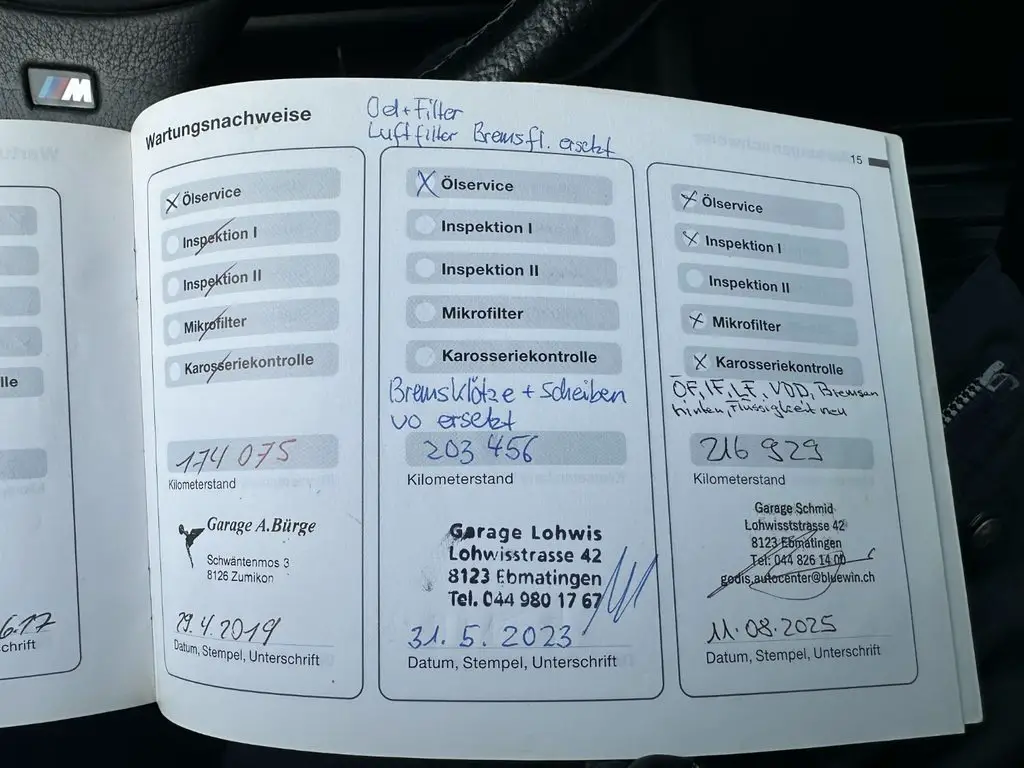 M
Wartungsnachweise
Oel + Filter
Luftfilter Bremsfl. ersetzt
15
Ölservice
Inspektion I
Inspektion II
Mikrofilter
Karosseriekontrolle
174 075
Kilometerstand
Garage A.Bürge
Schwäntenmos 3
8126 Zumikon
29.4.2019
Datum, Stempel, Unterschrift
Ölservice
Inspektion I
Inspektion II
Mikrofilter
Karosseriekontrolle
Bremsklötze + Scheiben
vo ersetzt
203 456
Kilometerstand
Garage Lohwis
Lohwisstrasse 42
8123 Ebmatingen
Tel. 044 980 17 67
31. 5. 2023
Datum, Stempel, Unterschrift
Ölservice
Inspektion I
Inspektion II
Mikrofilter
Karosseriekontrolle
ÖF, IF, LF, VDD, Bremsen
hinten, Flüssigkeit neu
216 929
Kilometerstand
Garage Schmid
Lohwisststrasse 42
8123 Ebmatingen
Tel: 044 826 14 00
godis.autocenter@bluewin.ch
11.08.2025
Datum, Stempel, Unterschrift
lle
6.17
chrift